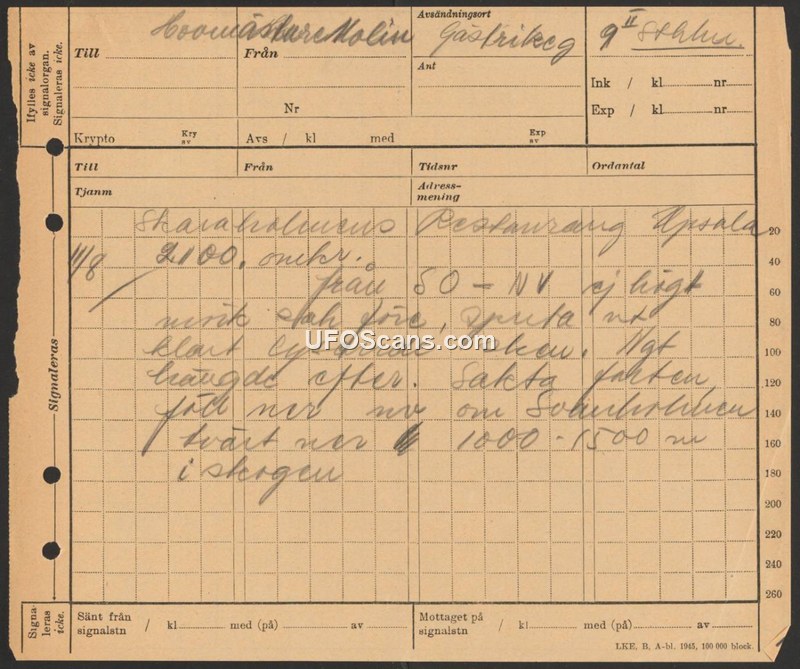 Ifylles icke av
signalorgan.
Signaleras icke.
Hovmästare Molin
Till
Från
Nr
Krypto
Kry
av
Avs / kl med
Exp
av
Avsändningsort
Gästrikeg
Ant
9 II Sthlm.
Ink / kl nr
Exp / kl nr
Till
Från
Tidsnr
Ordantal
Tjanm
Adress-
mening
Signaleras
Restaurang Upsala 20
11/8 2100. omkr. 40
från SO – NV ej högt 60
och 80
klart sken. Ngt 100
hängde efter. Sakta farten 120
föll ner nv om 140
tvärt ner 1000 - 1500 m 160
i skogen 180
200
220
240
260
UFOScans.com
Signa-
leras
icke.
Sänt från
signalstn / kl med (på) av
Mottaget på
signalstn / kl med (på) av
LKE, B, A-bl. 1945, 100 000 block.